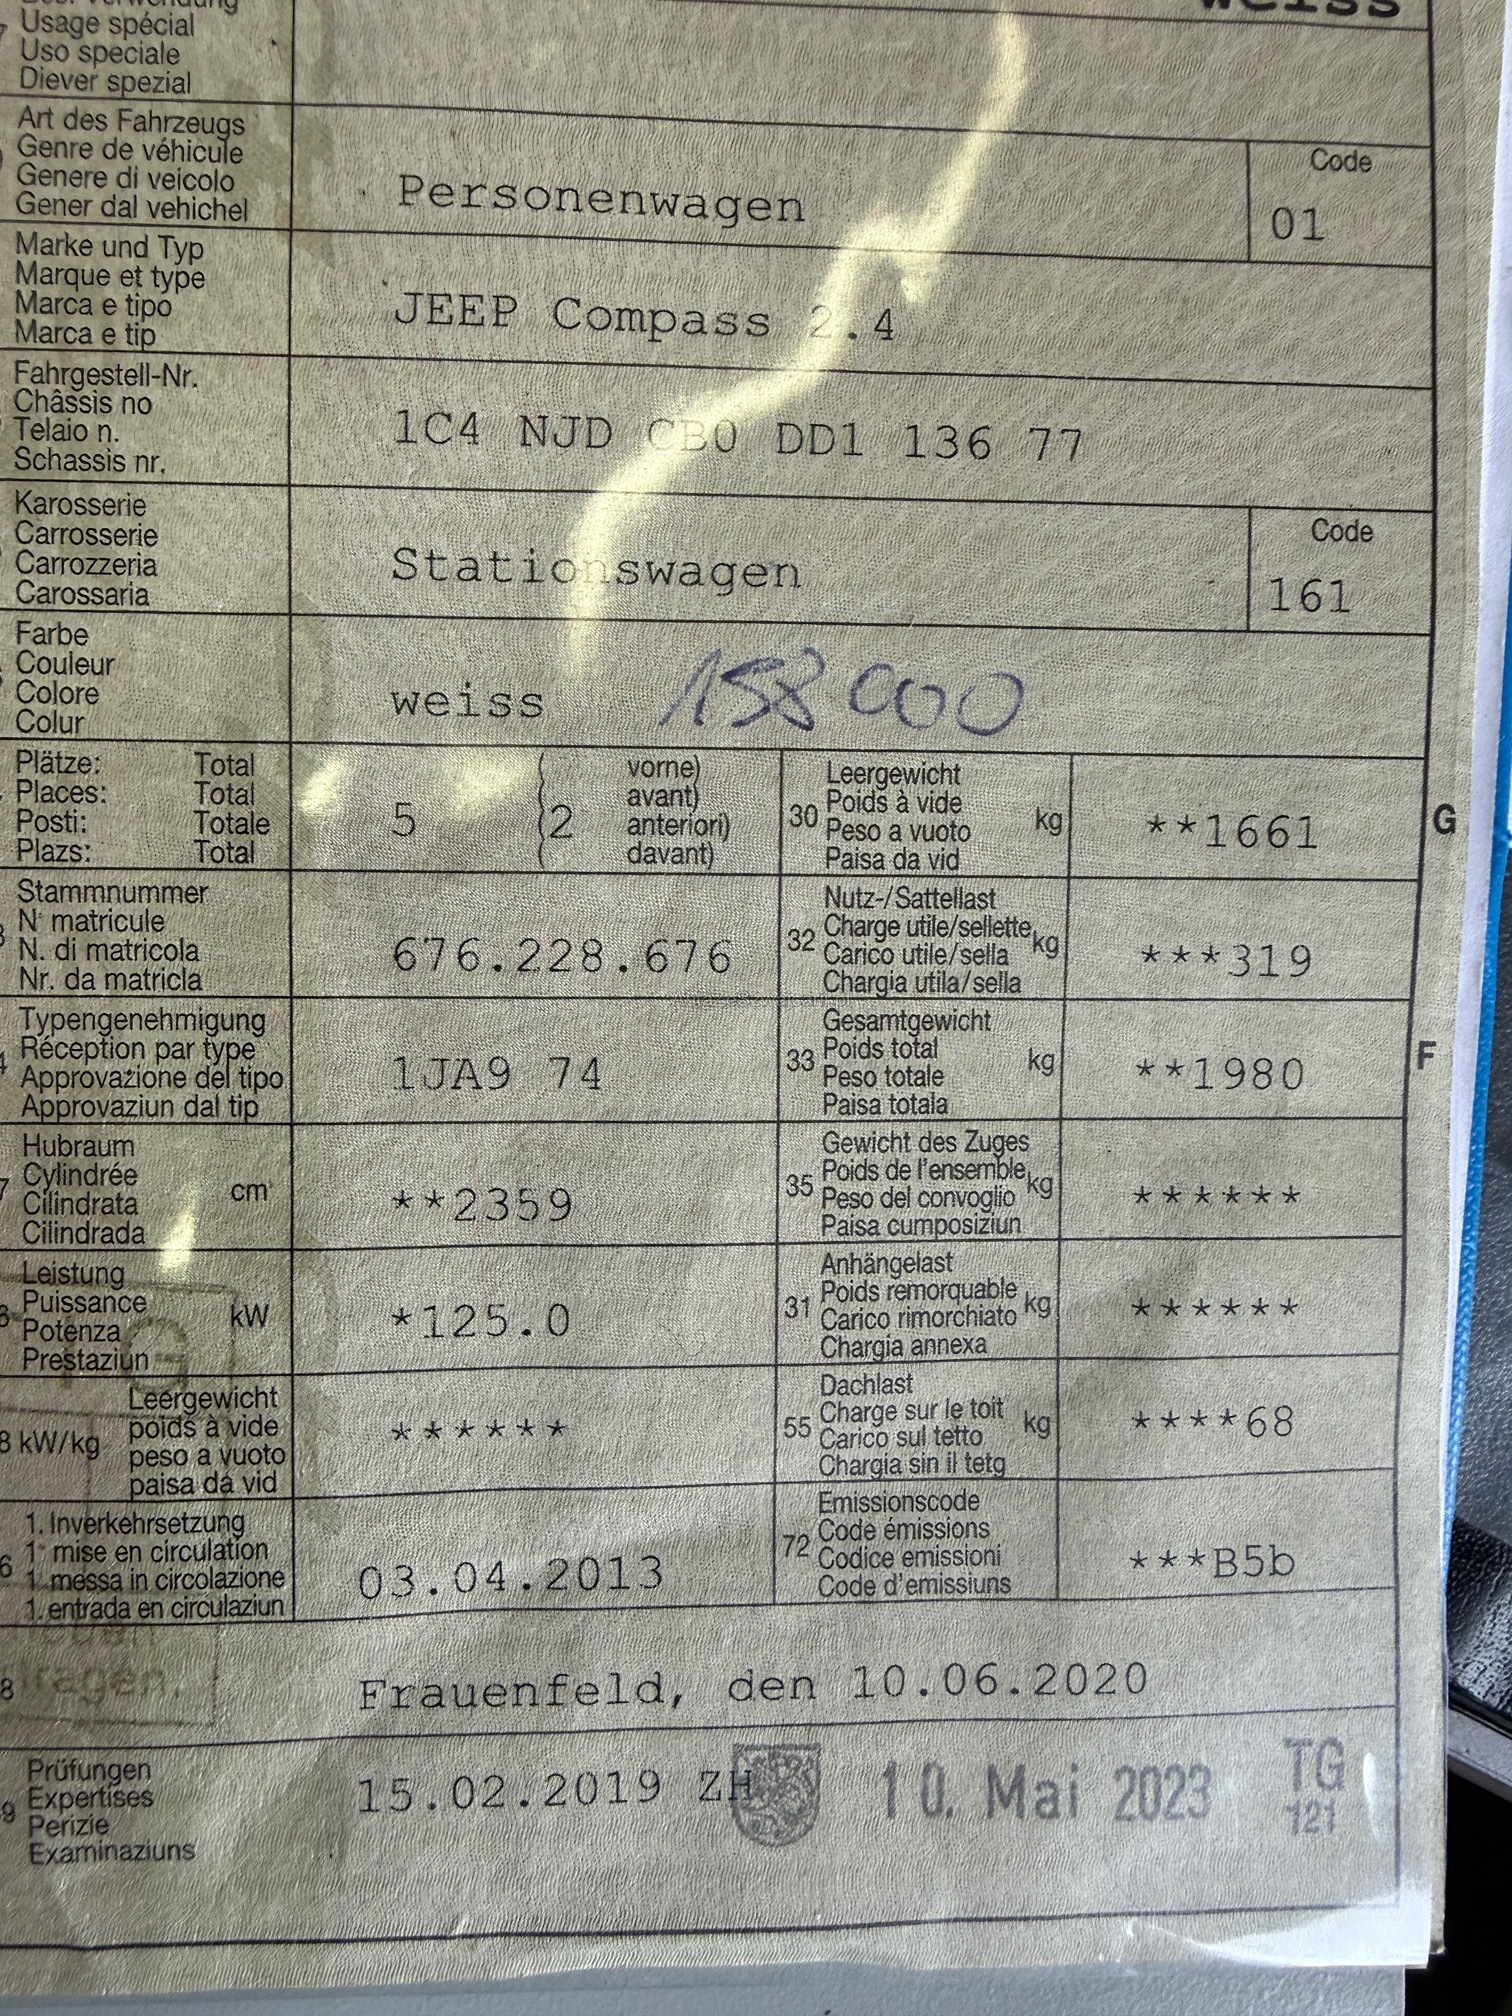 weiss
Usage spécial
Uso speciale
Diever spezial
Art des Fahrzeugs
Genre de véhicule
Genere di veicolo
Gener dal vehichel
Personenwagen
Code
01
Marke und Typ
Marque et type
Marca e tipo
Marca e tip
JEEP Compass 2.4
Fahrgestell-Nr.
Châssis no
Telaio n.
Schassis nr.
1C4 NJD CB0 DD1 136 77
Karosserie
Carrosserie
Carrozzeria
Carossaria
Stationswagen
Code
161
Farbe
Couleur
Colore
Colur
weiss 158000
Plätze: Total
Places: Total
Posti: Totale
Plazs: Total
5 (2
vorne)
avant)
anteriori)
davant)
30 Leergewicht
Poids à vide
Peso a vuoto
Paisa da vid
kg
**1661
G
Stammnummer
N° matricule
N. di matricola
Nr. da matricla
676.228.676
32 Nutz-/Sattellast
Charge utile/sellette
Carico utile/sella
Chargia utila/sella
kg
***319
Typengenehmigung
Réception par type
Approvazione del tipo
Approvaziun dal tip
1JA9 74
33 Gesamtgewicht
Poids total
Peso totale
Paisa totala
kg
**1980
F
Hubraum
Cylindrée
Cilindrata
Cilindrada
cm³
**2359
35 Gewicht des Zuges
Poids de l'ensemble
Peso del convoglio
Paisa cumposiziun
kg
******
Leistung
Puissance
Potenza
Prestaziun
kW
*125.0
31 Anhängelast
Poids remorquable
Carico rimorchiato
Chargia annexa
kg
******
kW/kg
Leergewicht
poids à vide
peso a vuoto
paisa da vid
******
55 Dachlast
Charge sur le toit
Carico sul tetto
Chargia sin il tetg
kg
****68
1. Inverkehrsetzung
1° mise en circulation
1. messa in circolazione
1. entrada en circulaziun
03.04.2013
72 Emissionscode
Code émissions
Codice emissioni
Code d'emissiuns
***B5b
Frauenfeld, den 10.06.2020
Prüfungen
Expertises
Perizie
Examinaziuns
15.02.2019 ZH
10. Mai 2023
TG
121